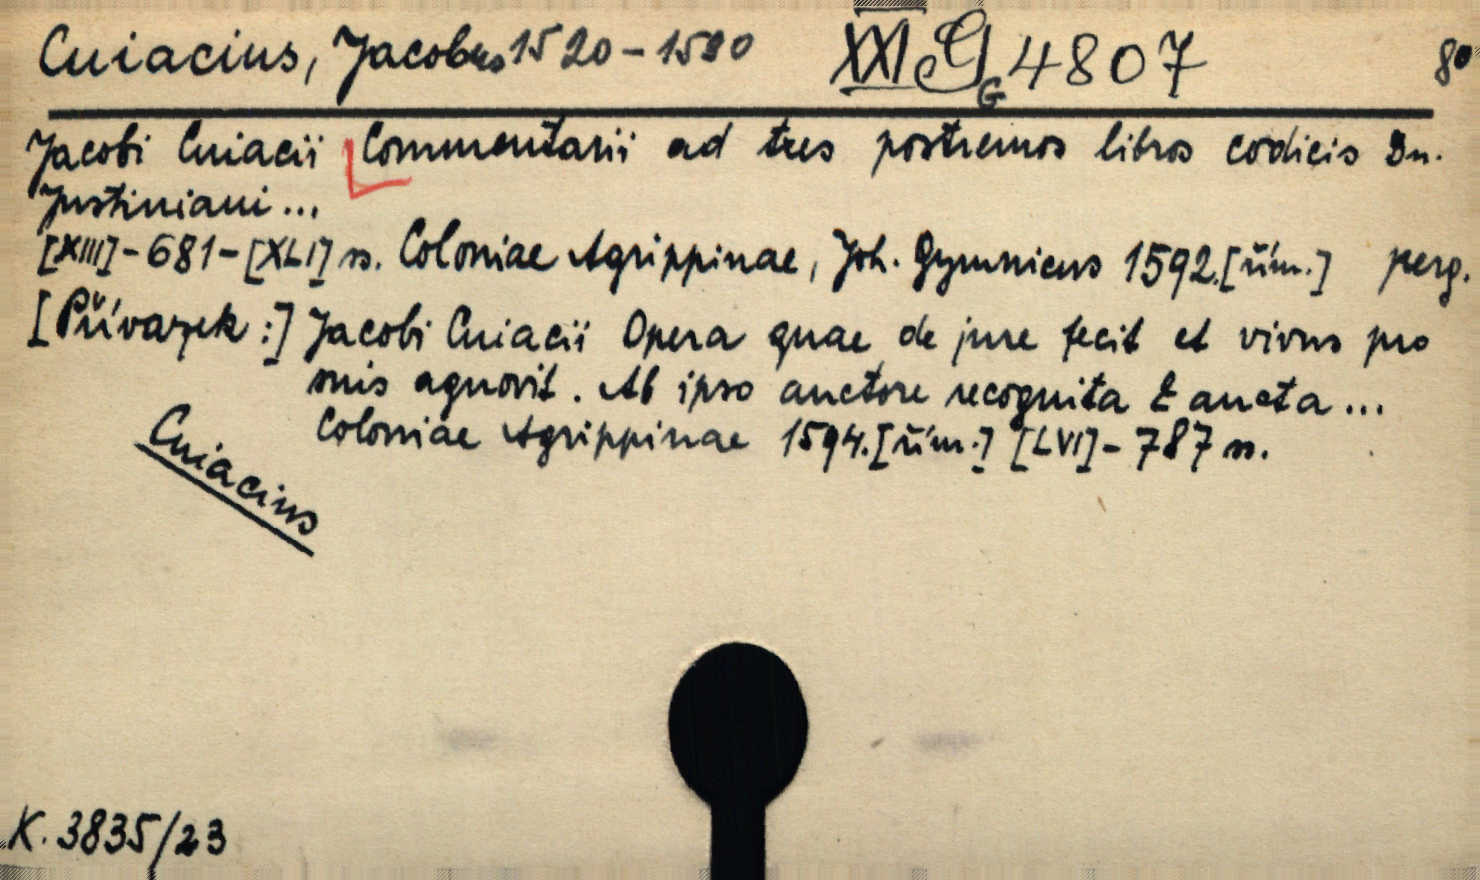 Cuiacius, Jacobus 1520-1590 XXI G G 4807 8°
Jacobi Cuiacii Commentarii ad tres postremos libros codicis Dn.
Justiniani...
[XIII]-681-[XLI] ss. Coloniae Agrippinae, Joh. Gymnicus 1592.[řím.] perg.
[Přívazek:] Jacobi Cuiacii Opera quae de jure fecit et vivus pro
suis agnovit. Ab ipso auctore recognita & aucta...
Coloniae Agrippinae 1594.[řím.] [LVI]-787 ss.
Cuiacius
K. 3835/23